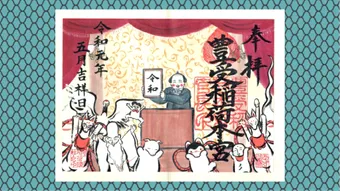 奉拝
豊受稲荷本宮
令和
令和元年
五月吉祥日